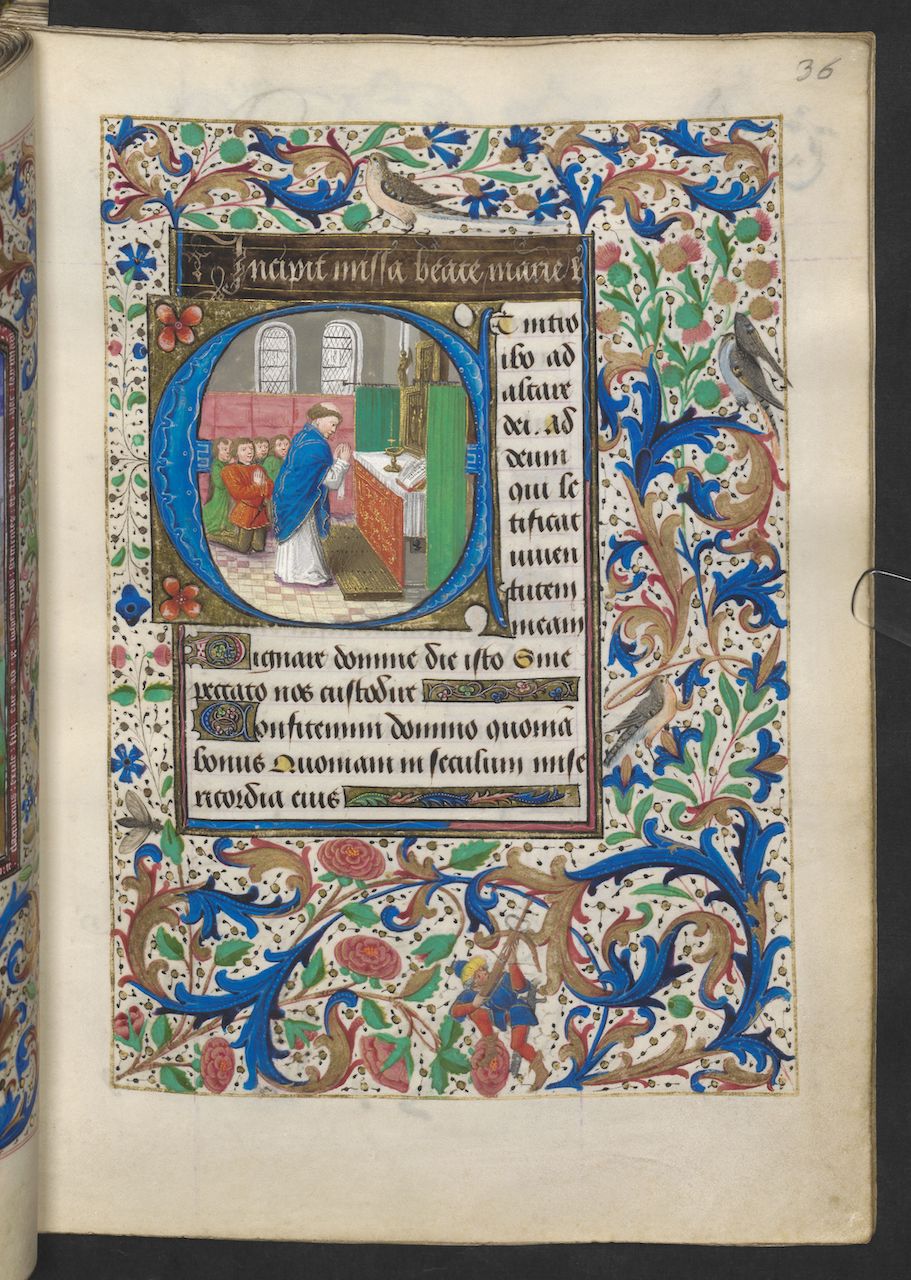 36
Incipit missa beate marie v
Et intro
ibo ad
altare
dei Ad
deum
qui le
tificat
iuuen
tutem
meam
Dignare domine die isto Sine
peccato nos custodire
Confitemini domino quoniā
bonus Quoniam in seculum mise
ricordia eius